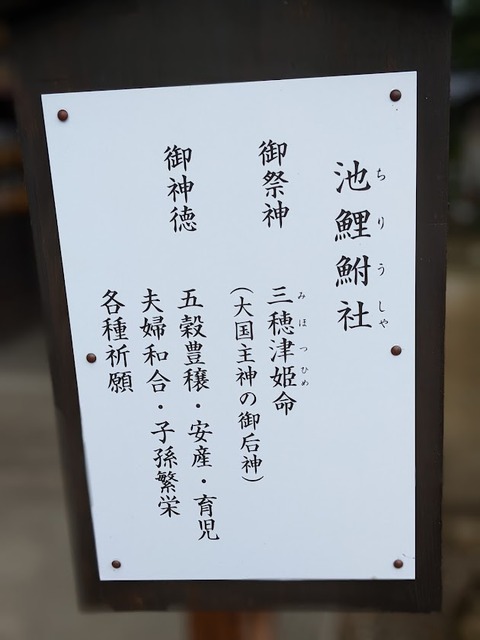 池鯉鮒社
ちりうしや
御祭神
三穂津姫命
みほつひめ
(大国主神の御后神)
御神徳
五穀豊穣・安産・育児
夫婦和合・子孫繁栄
各種祈願